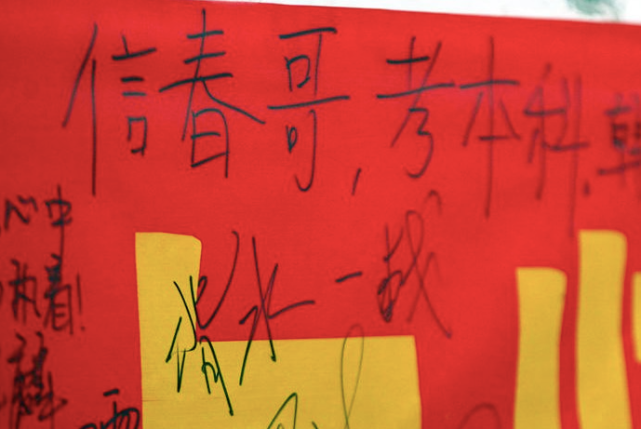 信春哥,考本科.韩
背水一战
心中
执着!